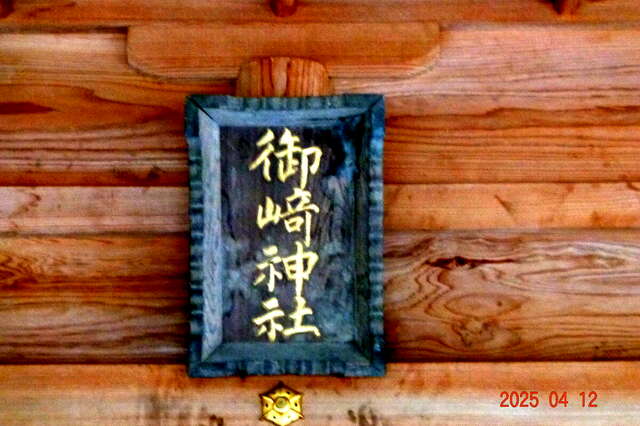 御﨑神社
2025 04 12